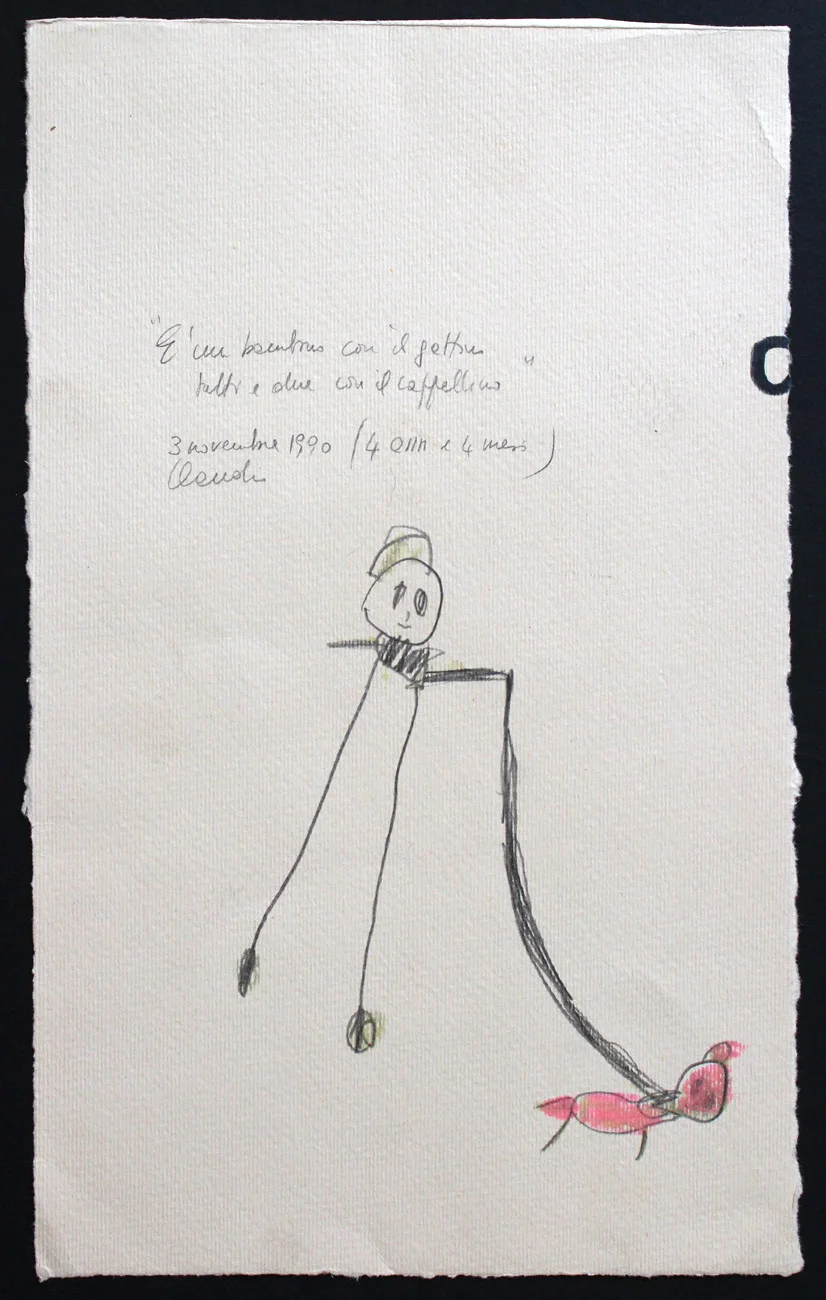 "E' un bambino con il gattino
tutti e due con il cappellino"
3 novembre 1990 (4 anni e 4 mesi)
C